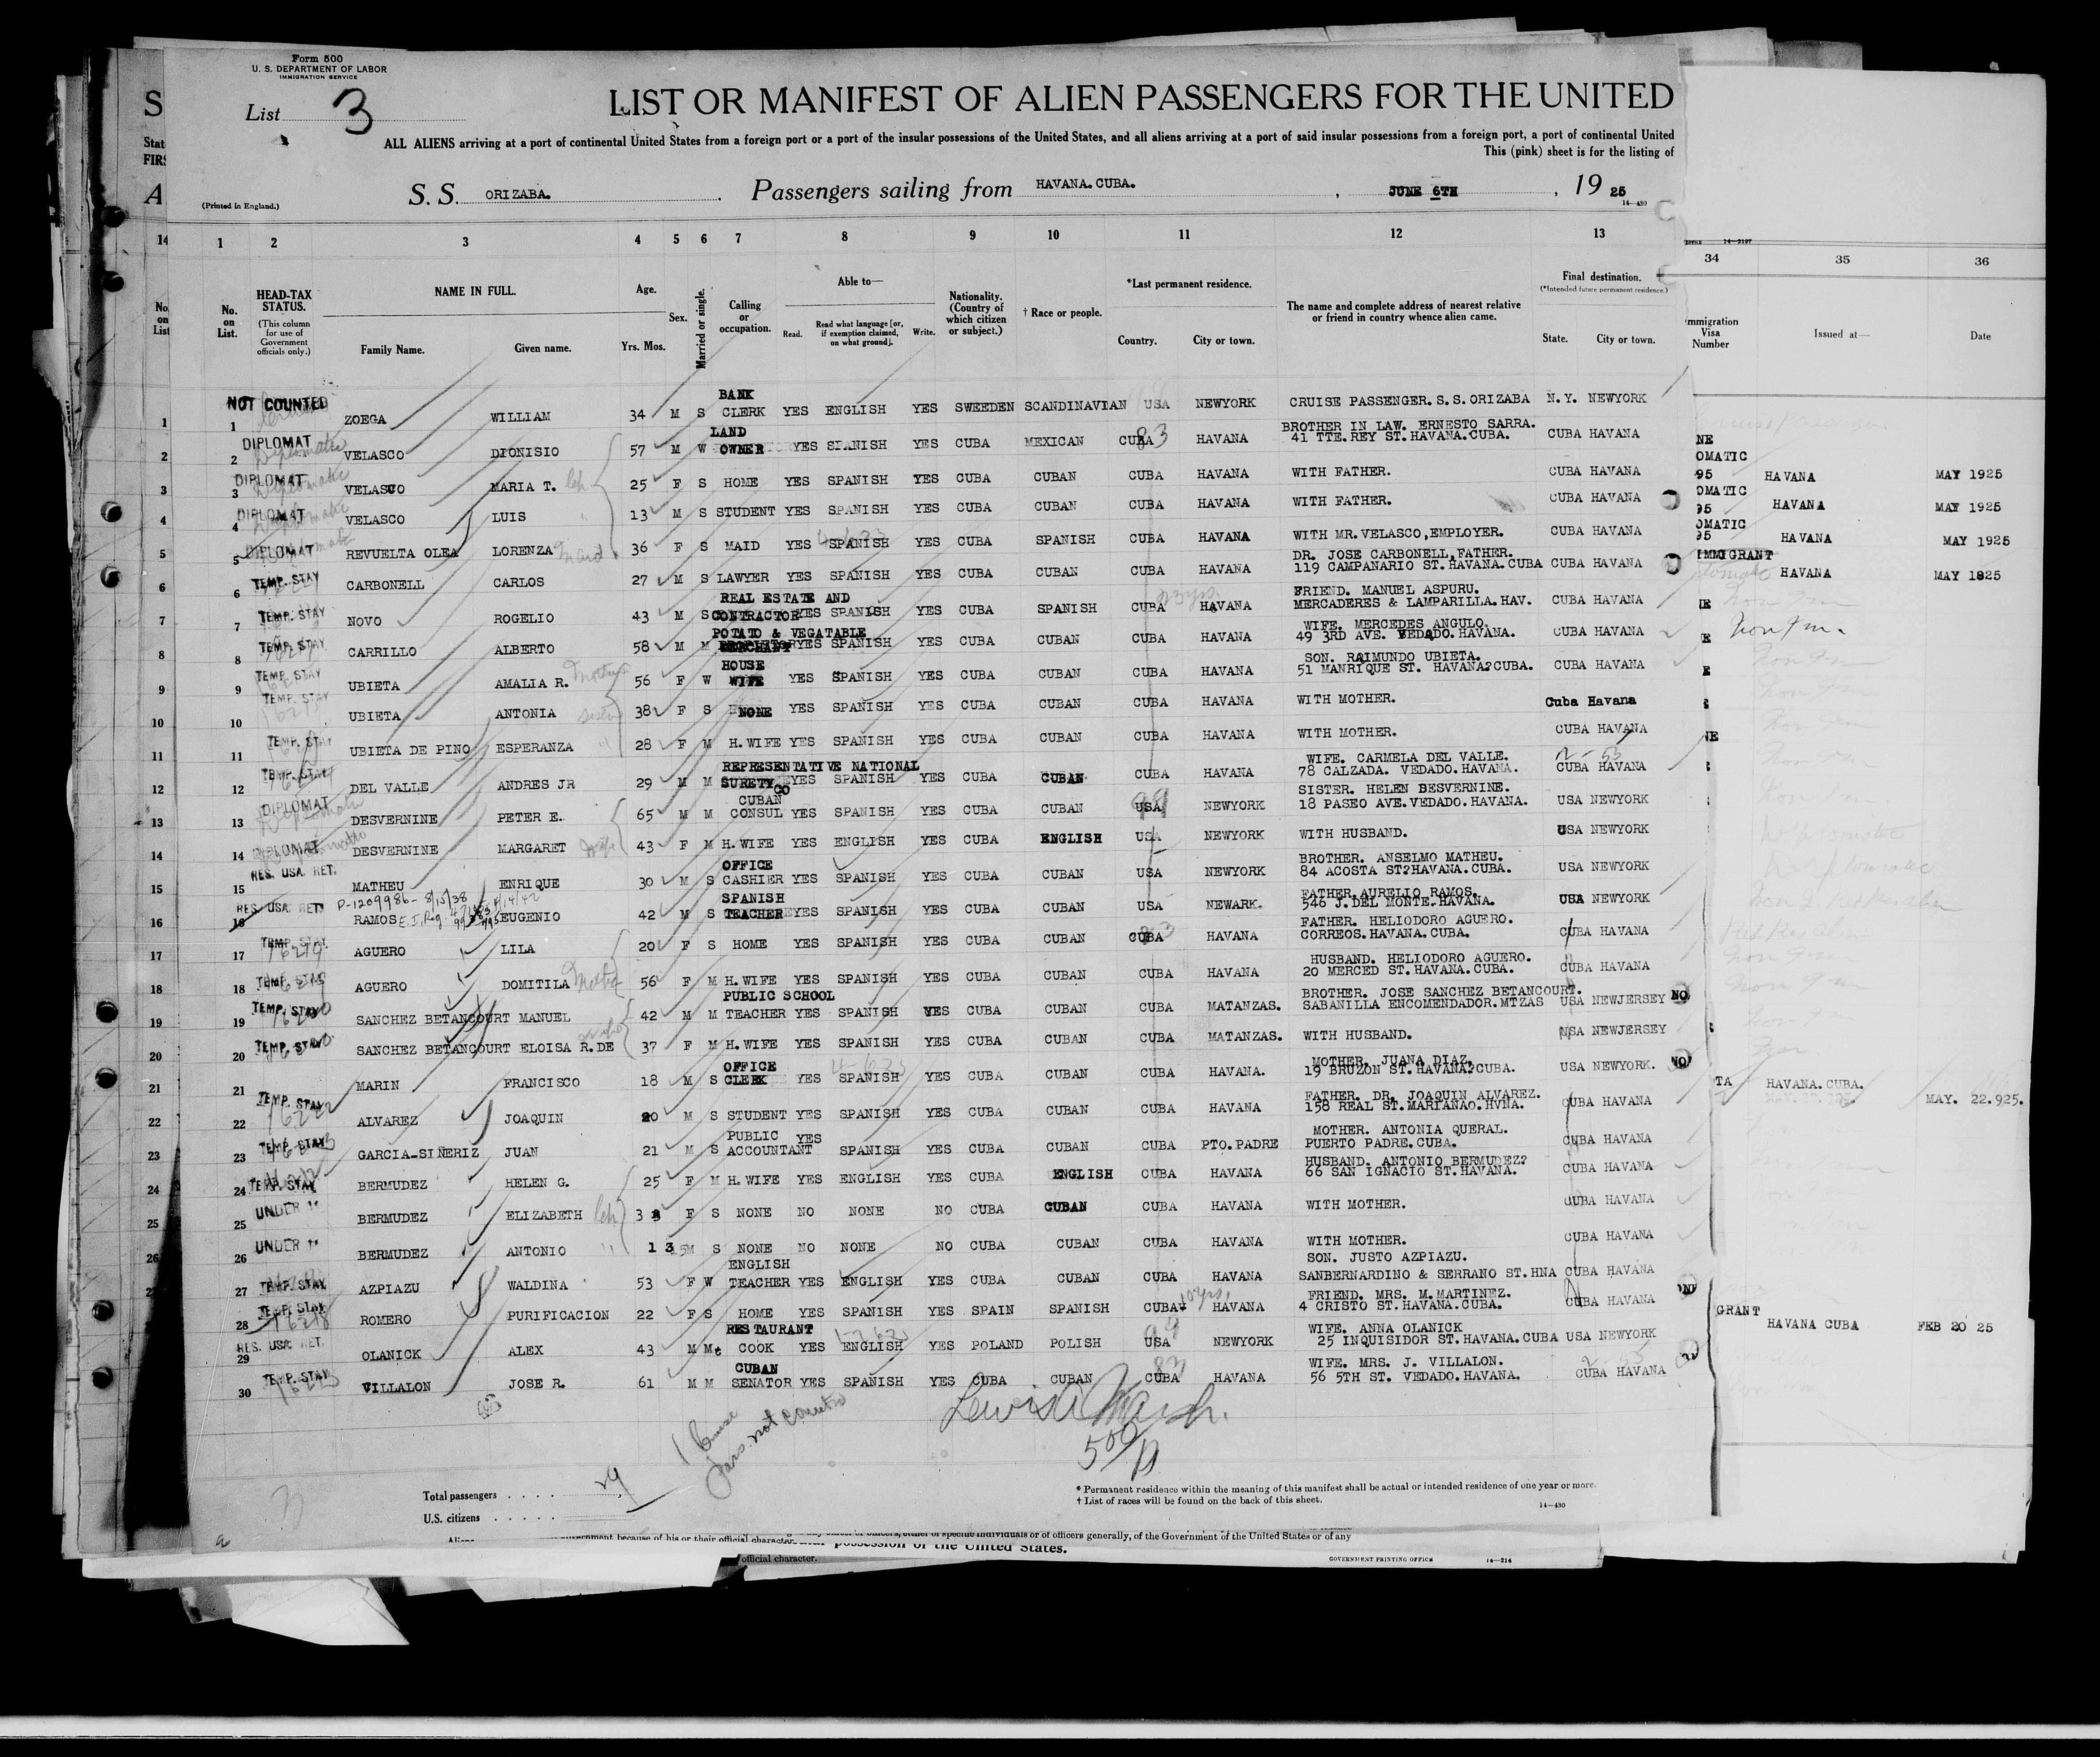 Form 500
U. S. DEPARTMENT OF LABOR
IMMIGRATION SERVICE
List 3
LIST OR MANIFEST OF ALIEN PASSENGERS FOR THE UNITED
ALL ALIENS arriving at a port of continental United States from a foreign port or a port of the insular possessions of the United States, and all aliens arriving at a port of said insular possessions from a foreign port, a port of continental United
This (pink) sheet is for the listing of
(Printed in England.)
S. S. ORIZABA. Passengers sailing from HAVANA.CUBA. , JUNE 6TH , 19 25
14—430
1 2 3 4 5 6 7 8 9 10 11 12 13 34 35 36
No. on List.
HEAD-TAX STATUS.
(This column for use of Government officials only.)
NAME IN FULL.
Family Name. Given name.
Age.
Yrs. Mos.
Sex.
Married or single.
Calling or occupation.
Able to—
Read. Read what language [or, if exemption claimed, on what ground]. Write.
Nationality. (Country of which citizen or subject.)
† Race or people.
*Last permanent residence.
Country. City or town.
The name and complete address of nearest relative or friend in country whence alien came.
Final destination.
(*Intended future permanent residence.)
State. City or town.
Visa Number
Issued at—
Date
NOT COUNTED 1 ZOEGA WILLIAM 34 M S BANK CLERK YES ENGLISH YES SWEEDEN SCANDINAVIAN USA NEWYORK CRUISE PASSENGER. S.S. ORIZABA N.Y. NEWYORK
DIPLOMAT 2 VELASCO DIONISIO 57 M W LAND OWNER YES SPANISH YES CUBA MEXICAN CUBA HAVANA BROTHER IN LAW. ERNESTO SARRA. 41 TTE. REY ST. HAVANA.CUBA. CUBA HAVANA
DIPLOMAT 3 VELASCO MARIA T. 25 F S HOME YES SPANISH YES CUBA CUBAN CUBA HAVANA WITH FATHER. CUBA HAVANA HAVANA MAY 1925
DIPLOMAT 4 VELASCO LUIS 13 M S STUDENT YES SPANISH YES CUBA CUBAN CUBA HAVANA WITH FATHER. CUBA HAVANA HAVANA MAY 1925
DIPLOMAT 5 REVUELTA OLEA LORENZA Maid 36 F S MAID YES SPANISH YES CUBA SPANISH CUBA HAVANA WITH MR. VELASCO, EMPLOYER. CUBA HAVANA HAVANA MAY 1925
TEMP. STAY 6 CARBONELL CARLOS 27 M S LAWYER YES SPANISH YES CUBA CUBAN CUBA HAVANA DR. JOSE CARBONELL, FATHER. 119 CAMPANARIO ST. HAVANA.CUBA CUBA HAVANA HAVANA MAY 1925
TEMP. STAY 7 NOVO ROGELIO 43 M S REAL ESTATE AND CONTRACTOR YES SPANISH YES CUBA SPANISH CUBA HAVANA FRIEND. MANUEL ASPURU. MERCADERES & LAMPARILLA. HAV. CUBA HAVANA
TEMP. STAY 8 CARRILLO ALBERTO 58 M M POTATO & VEGATABLE MERCHANT YES SPANISH YES CUBA CUBAN CUBA HAVANA WIFE. MERCEDES ANGULO. 49 3RD AVE. VEDADO. HAVANA. CUBA HAVANA
TEMP. STAY 9 UBIETA AMALIA R. Mother 56 F W HOUSE WIFE YES SPANISH YES CUBA CUBAN CUBA HAVANA SON. RAIMUNDO UBIETA. 51 MANRIQUE ST. HAVANA?CUBA. CUBA HAVANA
TEMP. STAY 10 UBIETA ANTONIA 38 F S NONE YES SPANISH YES CUBA CUBAN CUBA HAVANA WITH MOTHER. Cuba Havana
TEMP. STAY 11 UBIETA DE PINO ESPERANZA 28 F M H. WIFE YES SPANISH YES CUBA CUBAN CUBA HAVANA WITH MOTHER. CUBA HAVANA
TEMP. STAY 12 DEL VALLE ANDRES JR 29 M M REPRESENTATIVE NATIONAL SURETY CO YES SPANISH YES CUBA CUBAN CUBA HAVANA WIFE. CARMELA DEL VALLE. 78 CALZADA. VEDADO. HAVANA. CUBA HAVANA
DIPLOMAT 13 DESVERNINE PETER E. 65 M M CUBAN CONSUL YES SPANISH YES CUBA CUBAN USA NEWYORK SISTER. HELEN DESVERNINE. 18 PASEO AVE. VEDADO. HAVANA. USA NEWYORK
DIPLOMAT 14 DESVERNINE MARGARET wife 43 F M H. WIFE YES ENGLISH YES CUBA ENGLISH USA NEWYORK WITH HUSBAND. USA NEWYORK
RES. USA. RET. 15 MATHEU ENRIQUE 30 M S OFFICE CASHIER YES SPANISH YES CUBA CUBAN USA NEWYORK BROTHER. ANSELMO MATHEU. 84 ACOSTA ST?HAVANA.CUBA. USA NEWYORK
RES. USA. RET. 16 RAMOS P-1209986 - 8/15/38 EUGENIO 42 M S SPANISH TEACHER YES SPANISH YES CUBA CUBAN USA NEWARK. FATHER.AURELIO RAMOS. 546 J. DEL MONTE. HAVANA. USA NEWYORK
TEMP. STAY 17 AGUERO LILA 20 F S HOME YES SPANISH YES CUBA CUBAN CUBA HAVANA FATHER. HELIODORO AGUERO. CORREOS. HAVANA. CUBA. CUBA HAVANA
TEMP. STAY 18 AGUERO DOMITILA Mother 56 F M H. WIFE YES SPANISH YES CUBA CUBAN CUBA HAVANA HUSBAND. HELIODORO AGUERO. 20 MERCED ST. HAVANA. CUBA. CUBA HAVANA
TEMP. STAY 19 SANCHEZ BETANCOURT MANUEL 42 M M PUBLIC SCHOOL TEACHER YES SPANISH YES CUBA CUBAN CUBA MATANZAS. BROTHER. JOSE SANCHEZ BETANCOURT. SABANILLA ENCOMENDADOR. MTZAS USA NEWJERSEY
TEMP. STAY 20 SANCHEZ BETANCOURT ELOISA R. DE 37 F M H. WIFE YES SPANISH YES CUBA CUBAN CUBA MATANZAS. WITH HUSBAND. USA NEWJERSEY
21 MARIN FRANCISCO 18 M S OFFICE CLERK YES SPANISH YES CUBA CUBAN CUBA HAVANA. MOTHER. JUANA DIAZ. 19 BRUZON ST. HAVANA?CUBA. USA NEWYORK. HAVANA. CUBA. MAY. 22.925.
TEMP. STAY 22 ALVAREZ JOAQUIN 20 M S STUDENT YES SPANISH YES CUBA CUBAN CUBA HAVANA FATHER. DR. JOAQUIN ALVAREZ. 158 REAL ST. MARIANAO. HVNA. CUBA HAVANA
TEMP. STAY 23 GARCIA-SIÑERIZ JUAN 21 M S PUBLIC ACCOUNTANT YES SPANISH YES CUBA CUBAN CUBA PTO. PADRE MOTHER. ANTONIA QUERAL. PUERTO PADRE. CUBA. CUBA HAVANA
TEMP. STAY 24 BERMUDEZ HELEN G. 25 F M H. WIFE YES ENGLISH YES CUBA ENGLISH CUBA HAVANA HUSBAND. ANTONIO BERMUDEZ? 66 SAN IGNACIO ST. HAVANA. CUBA HAVANA
UNDER 25 BERMUDEZ ELIZABETH 3 F S NONE NO NONE NO CUBA CUBAN CUBA HAVANA WITH MOTHER. CUBA HAVANA
UNDER 26 BERMUDEZ ANTONIO 1 3 M S NONE NO NONE NO CUBA CUBAN CUBA HAVANA WITH MOTHER. CUBA HAVANA
TEMP. STAY 27 AZPIAZU WALDINA 53 F W ENGLISH TEACHER YES ENGLISH YES CUBA CUBAN CUBA HAVANA SON. JUSTO AZPIAZU. SANBERNARDINO & SERRANO ST. HNA CUBA HAVANA
TEMP. STAY 28 ROMERO PURIFICACION 22 F S HOME YES SPANISH YES SPAIN SPANISH CUBA 10 yrs. HAVANA FRIEND. MRS. M. MARTINEZ. 4 CRISTO ST. HAVANA. CUBA. CUBA HAVANA
RES. USA. RET. 29 OLANICK ALEX 43 M M RESTAURANT COOK YES ENGLISH YES POLAND POLISH USA NEWYORK WIFE. ANNA OLANICK 25 INQUISIDOR ST. HAVANA. CUBA USA NEWYORK HAVANA CUBA FEB 20 25
TEMP. STAY 30 VILLALON JOSE R. 61 M M CUBAN SENATOR YES SPANISH YES CUBA CUBAN CUBA HAVANA WIFE. MRS. J. VILLALON. 56 5TH ST. VEDADO. HAVANA. CUBA HAVANA
1 Cruise
pass. not counted
Total passengers . . . . 29
U.S. citizens . . . . . .
* Permanent residence within the meaning of this manifest shall be actual or intended residence of one year or more.
† List of races will be found on the back of this sheet.
14—430
Government because of his or their official character.
possession of the United States.
official character.
GOVERNMENT PRINTING OFFICE 14—214